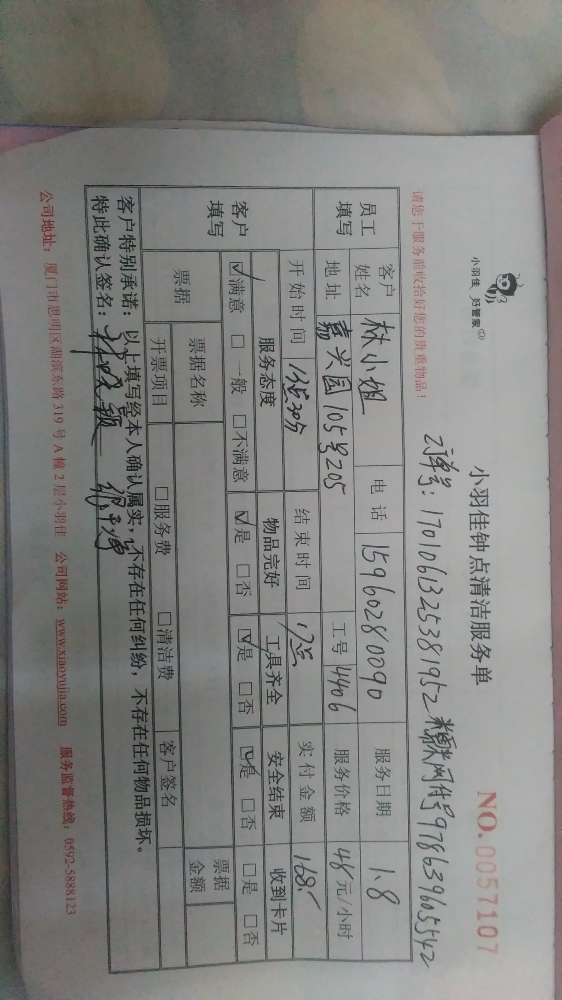 小羽佳 好管家
小羽佳钟点清洁服务单 NO. 0057107
订单号：1701061325381952 糯米网付号978639605542
请您于服务前收拾好您的贵重物品！
员工填写 客户姓名 林小姐 电话 15960280090 服务日期 1.8
地址 嘉兴园105号205 工号 4406 服务价格 48元/小时
客户填写 开始时间 结束时间 17点 实付金额 168
服务态度 物品完好 工具齐全 安全结束 收到卡片
☑满意 □一般 □不满意 ☑是 □否 ☑是 □否 ☑是 □否 □是 □否
票据 票据名称 客户签名 票据金额
开票项目 □服务费 □清洁费
客户特别承诺：以上填写经本人确认属实，不存在任何纠纷，不存在任何物品损坏。
特此确认签名：
公司地址：厦门市思明区湖滨东路319号A幢2层小羽佳 公司网站：www.xiaoyujia.com 服务监督热线：0592-5888123